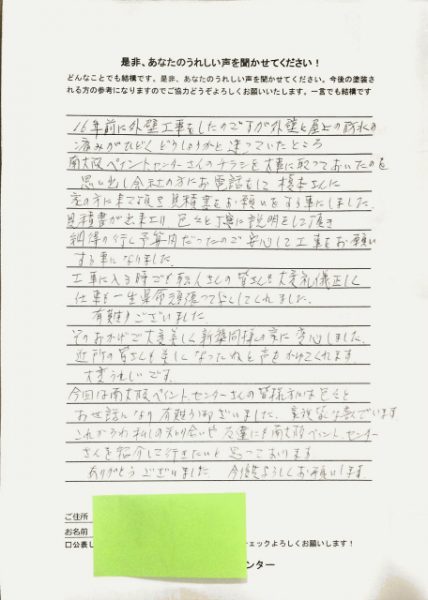 是非、あなたのうれしい声を聞かせてください！
どんなことでも結構です。是非、あなたのうれしい声を聞かせてください。今後の塗装さ
れる方の参考になりますのでご協力どうぞよろしくお願いいたします。一言でも結構です
16年前に外壁工事をしたのですが外壁と屋上の防水の
痛みがひどくどうしようかと迷っていたところ
南大阪ペイントセンターさんのチラシを大事に取っておいたのを
思い出し会社の方にお電話をして 橋本さんに
家の方に来て頂き見積書をお願いをする事にしました。
見積書が出来上り 色々と丁寧に説明をして頂き
納得の行く予算内だったので安心して工事をお願い
する事になりました。
工事に入る時でも職人さんの皆さんも大変礼儀正しく
仕事も一生懸命頑張って下してくれました。
有難うございました
そのおかげで大変美しく新築同様の家に変心しました。
近所の皆さんも美しくなったねと声をかけてくれます
大変うれしいです。
今回は南大阪ペイントセンターさんの皆様方には色々と
お世話になり有難うございました。
これからわ私しの知り合いや友達にも南大阪ペイントセンター
さんを紹介して行きたいと思っております
ありがとうございました 今後共よろしくお願いします。
ご住所
お名前
口公表し
ェックよろしくお願いします！
ンター